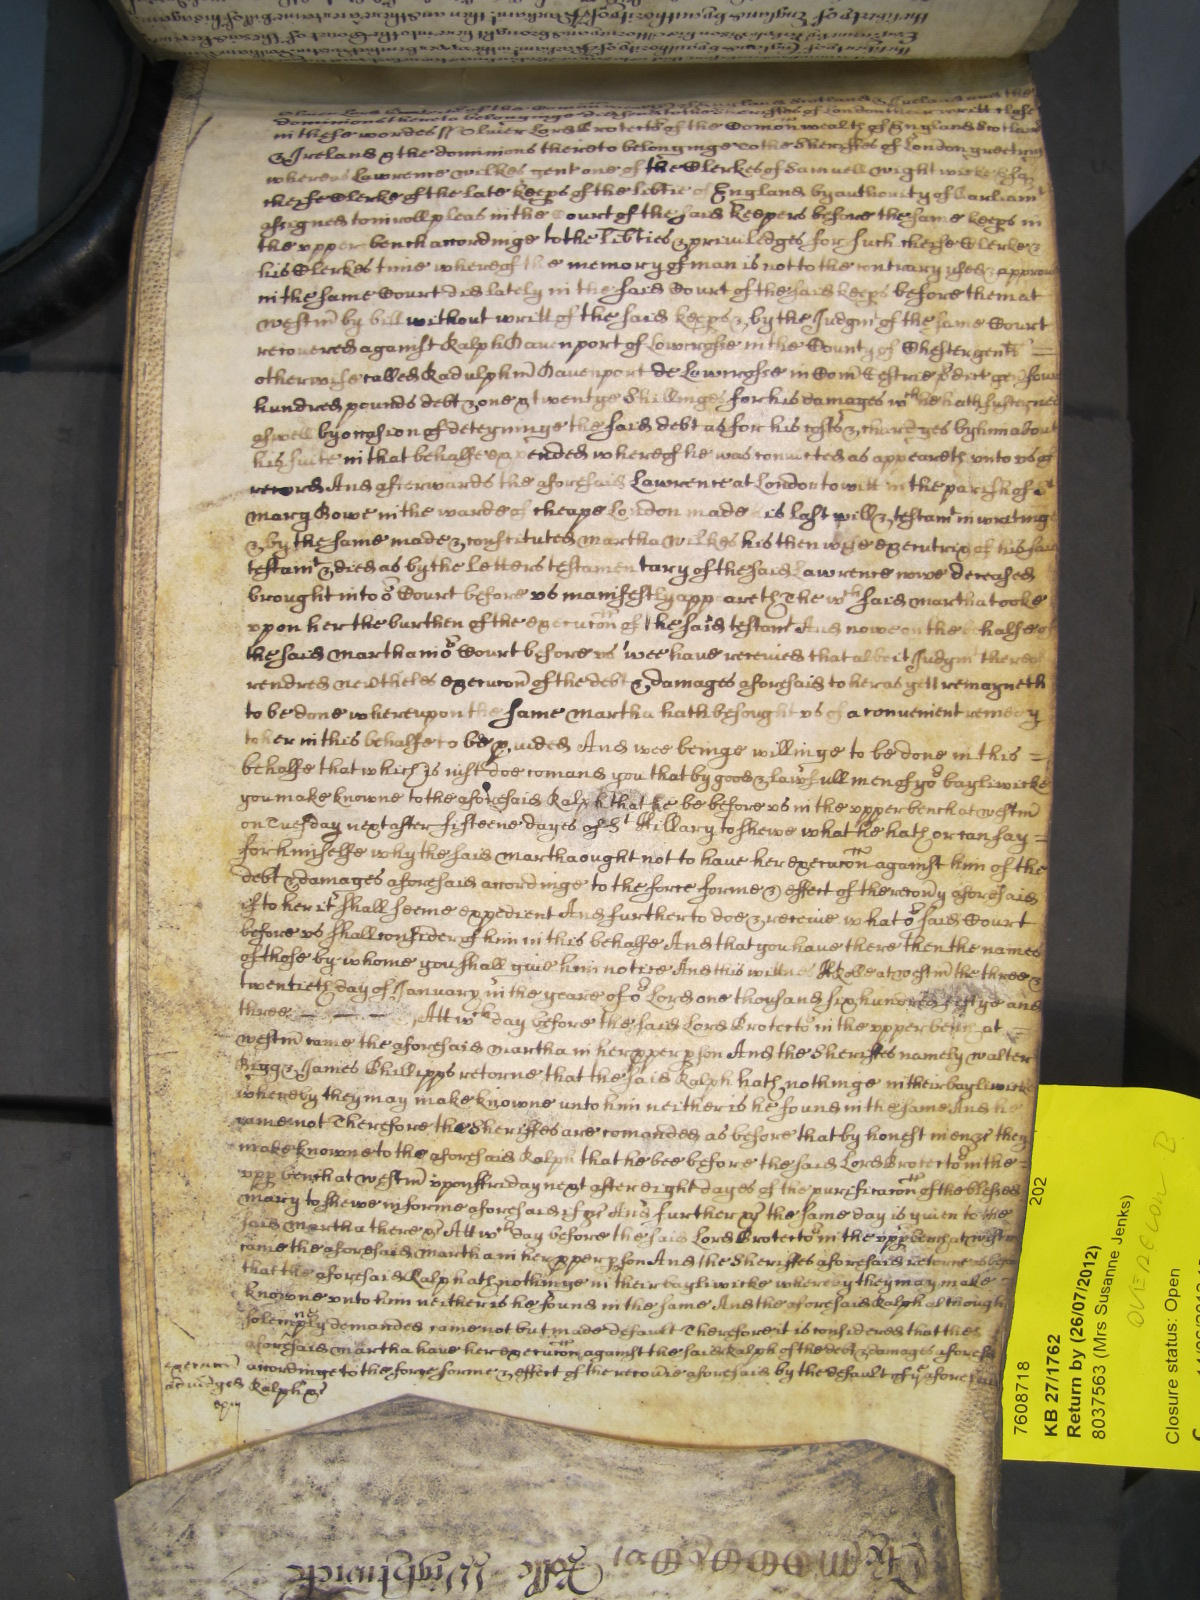 Oliver Lord Protector of the Comonwealth of England Scotland & Ireland and the
dominions thereto belonginge did send to the Sheriffes of London their writt close
in these wordes ss Oliver Lord Protector of the Comonwealth of England Scotland
& Ireland & the dominions thereto belonginge to the Sheriffes of London greetinge
whereas Lawrence Wilkes gent one of the Clerkes of Samuell Wightwicke Esq
cheife Clerke of the late keeps of the libtie of England by authority of Parliamt
assigned to inroll pleas in the Court of the said keepers before the same keeps in
the upper bench accordinge to the libties & priviledges for such cheife Clerke &
his Clerkes time whereof the memory of man is not to the contrary used & approved
in the same Court did lately in the said Court of the said keeps before them at
westm by bill without writt of the said keeps & by the Judgmt of the same Court
recovered against Ralph Davenport of Lowcrosse in the County of Chester gent
otherwise called Radulphm Davenport de Lowcrosse in Com Cestrie pdict gen foure
hundred pounds debt & one & twentye shillinges for his damages wch he hath susteyned
aswell by occasion of deteyninge the said debt as for his costs & chardges by him about
his suite in that behalfe expended whereof he was convicted as appeareth unto us of
record And afterwards the aforesaid Lawrence at London to witt in the parish of St
Mary Bowe in the warde of cheape London made his last will & testamt in writinge
& by the same made & constituted Martha Wilkes his then wife executrix of his said
testamt & died as by the letters testamentary of the said Lawrence nowe deceased
brought into or Court before us manifestly appeareth The wch said Martha tooke
upon her the burthen of the execucon of the said testamt And nowe on the behalfe of
the said Martha in or Court before us wee have received that albeit Judgmt thereof
rendred nevtheles execucon of the debt & damages aforesaid to her as yett remayneth
to be done whereupon the same Martha hath besought us of a convenient remedy
to her in this behalfe to be pvided And wee beinge willinge to be done in this =
behalfe that which is iust doe comand you that by good & lawfull men of yor bayliwicke
you make knowne to the aforesaid Ralph that he be before us in the upper bench at westm
on Tuesday next after fifteene dayes of St Hillary to shewe what he hath or can say =
for himselfe why the said Martha ought not to have her execucon against him of the
debt & damages aforesaid accordinge to the force forme & effect of the recovy aforesaid
if to her it shall seeme expedient And further to doe & receive what or said Court
before us shall consider of him in this behalfe And that you have there then the names
of those by whome you shall give him notice And this writt wittnes H Rolle at westm the three &
twentieth day of January in the yeare of or Lord one thousand six hundred fiftye and
three — — — Att wch day before the said Lord Protector in the upper bench at
westm came the aforesaid Martha in her pper pson And the Sheriffes namely Walter
Bigg & James Phillipps retorne that the said Ralph hath nothinge in their bayliwicke
whereby they may make knowne unto him neither is he found in the same And he
came not Therefore the Sheriffes are comanded as before that by honest men &c they
make knowne to the aforesaid Ralph that he bee before the said Lord Protector in the =
upp bench at westm upon ffriday next after eight dayes of the purificacon of the blessed
Mary to shewe in forme aforesaid if &c And further &c the same day is given to the
said Martha there &c Att wch day before the said Lord Protector in the upp bench at westm
came the aforesaid Martha in her pper pson And the Sheriffes aforesaid retorne as before
that the aforesaid Ralph hath nothinge in their bayliwicke whereby they may make =
knowne unto him neither is he found in the same And the aforesaid Ralph although
solempnly demanded came not but made default Therefore it is considered that the
aforesaid Martha have her execucon against the said Ralph of the debt & damages aforesaid
accordinge to the force forme & effect of the recovie aforesaid by the default of ye aforesaid
Ralph &c
Rolle Wightwick
7608718
202
KB 27/1762
Return by (26/07/2012)
8037563 (Mrs Susanne Jenks)
Closure status: Open